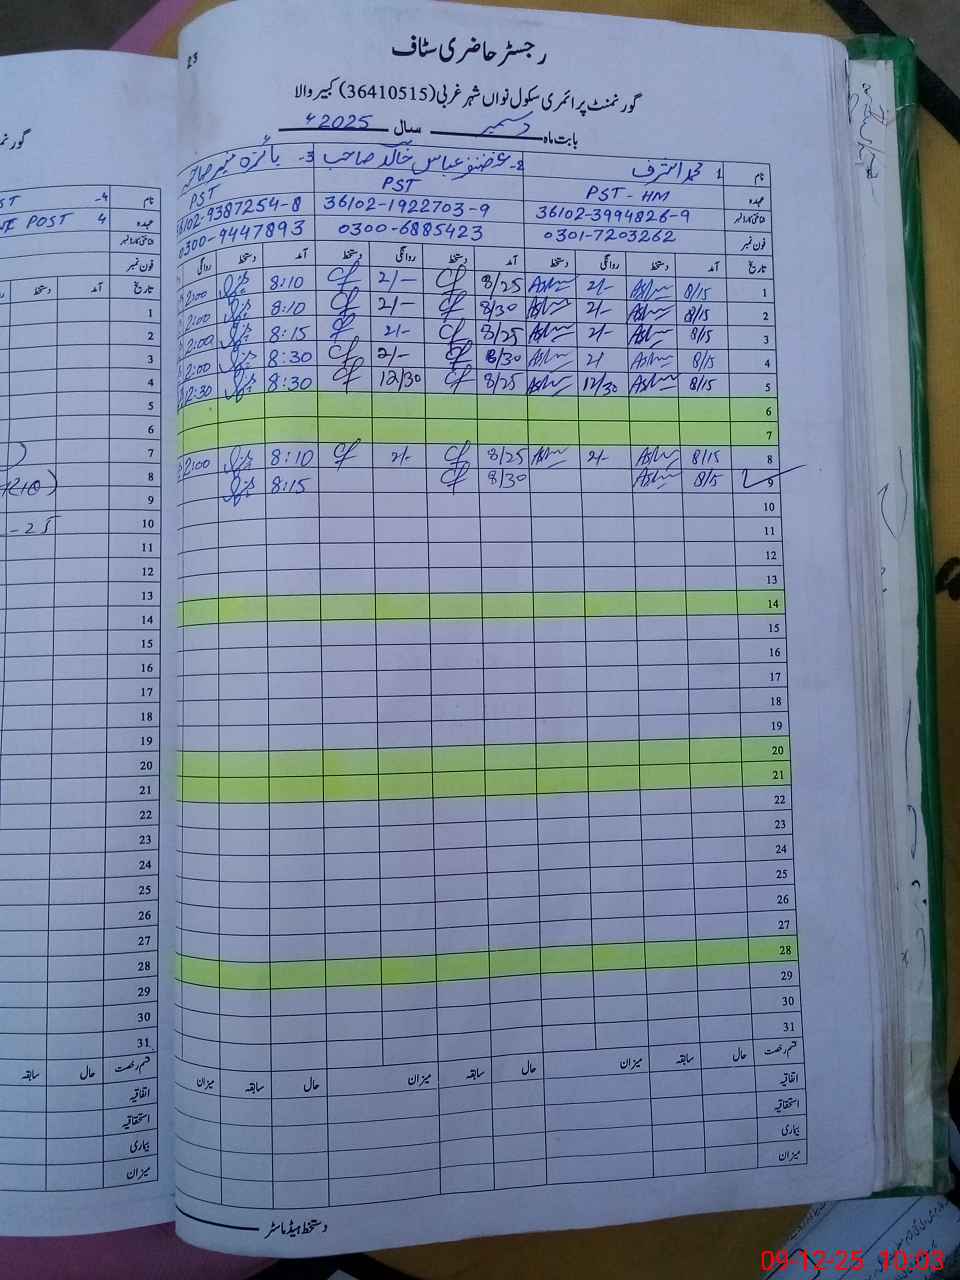 23
رجسٹر حاضری سٹاف
گورنمنٹ پرائمری سکول نواں شہر غربی (36410515) کبیر والا
بابت ماہ دسمبر سال 2025ء
نام 1 محمد اشرف 2- غضنفر عباس خالد صاحب 3-
عہدہ PST - HM PST PST
شناختی کارڈ نمبر 36102-3994826-9 36102-1922703-9 36102-9387254-8
فون نمبر 0301-7203262 0300-6885423 0300-9447893
تاریخ آمد دستخط روانگی دستخط آمد دستخط روانگی دستخط آمد دستخط روانگی
1 8/15 2/- 8/25 2/- 8:10 2:00
2 8/15 2/- 8/30 2/- 8:10 2:00
3 8/15 2/- 8/25 2/- 8:15 2:00
4 8/15 2/ 8/30 2/- 8:30 2:00
5 8/15 12/30 8/25 12/30 8:30 12:30
6
7
8 8/15 2/- 8/25 2/- 8:10 2:00
9 8/15 8/30 8:15
10
11
12
13
14
15
16
17
18
19
20
21
22
23
24
25
26
27
28
29
30
31
قسم رخصت حال سابقہ میزان حال سابقہ میزان حال سابقہ میزان
اتفاقیہ
استحقاقیہ
بیماری
میزان
دستخط ہیڈ ماسٹر
نام 4-
عہدہ POST
شناختی کارڈ نمبر
فون نمبر
تاریخ آمد دستخط
1
2
3
4
5
6
7
8
9
10
11
12
13
14
15
16
17
18
19
20
21
22
23
24
25
26
27
28
29
30
31
قسم رخصت حال سابقہ
اتفاقیہ
استحقاقیہ
بیماری
میزان
09-12-25 10:03